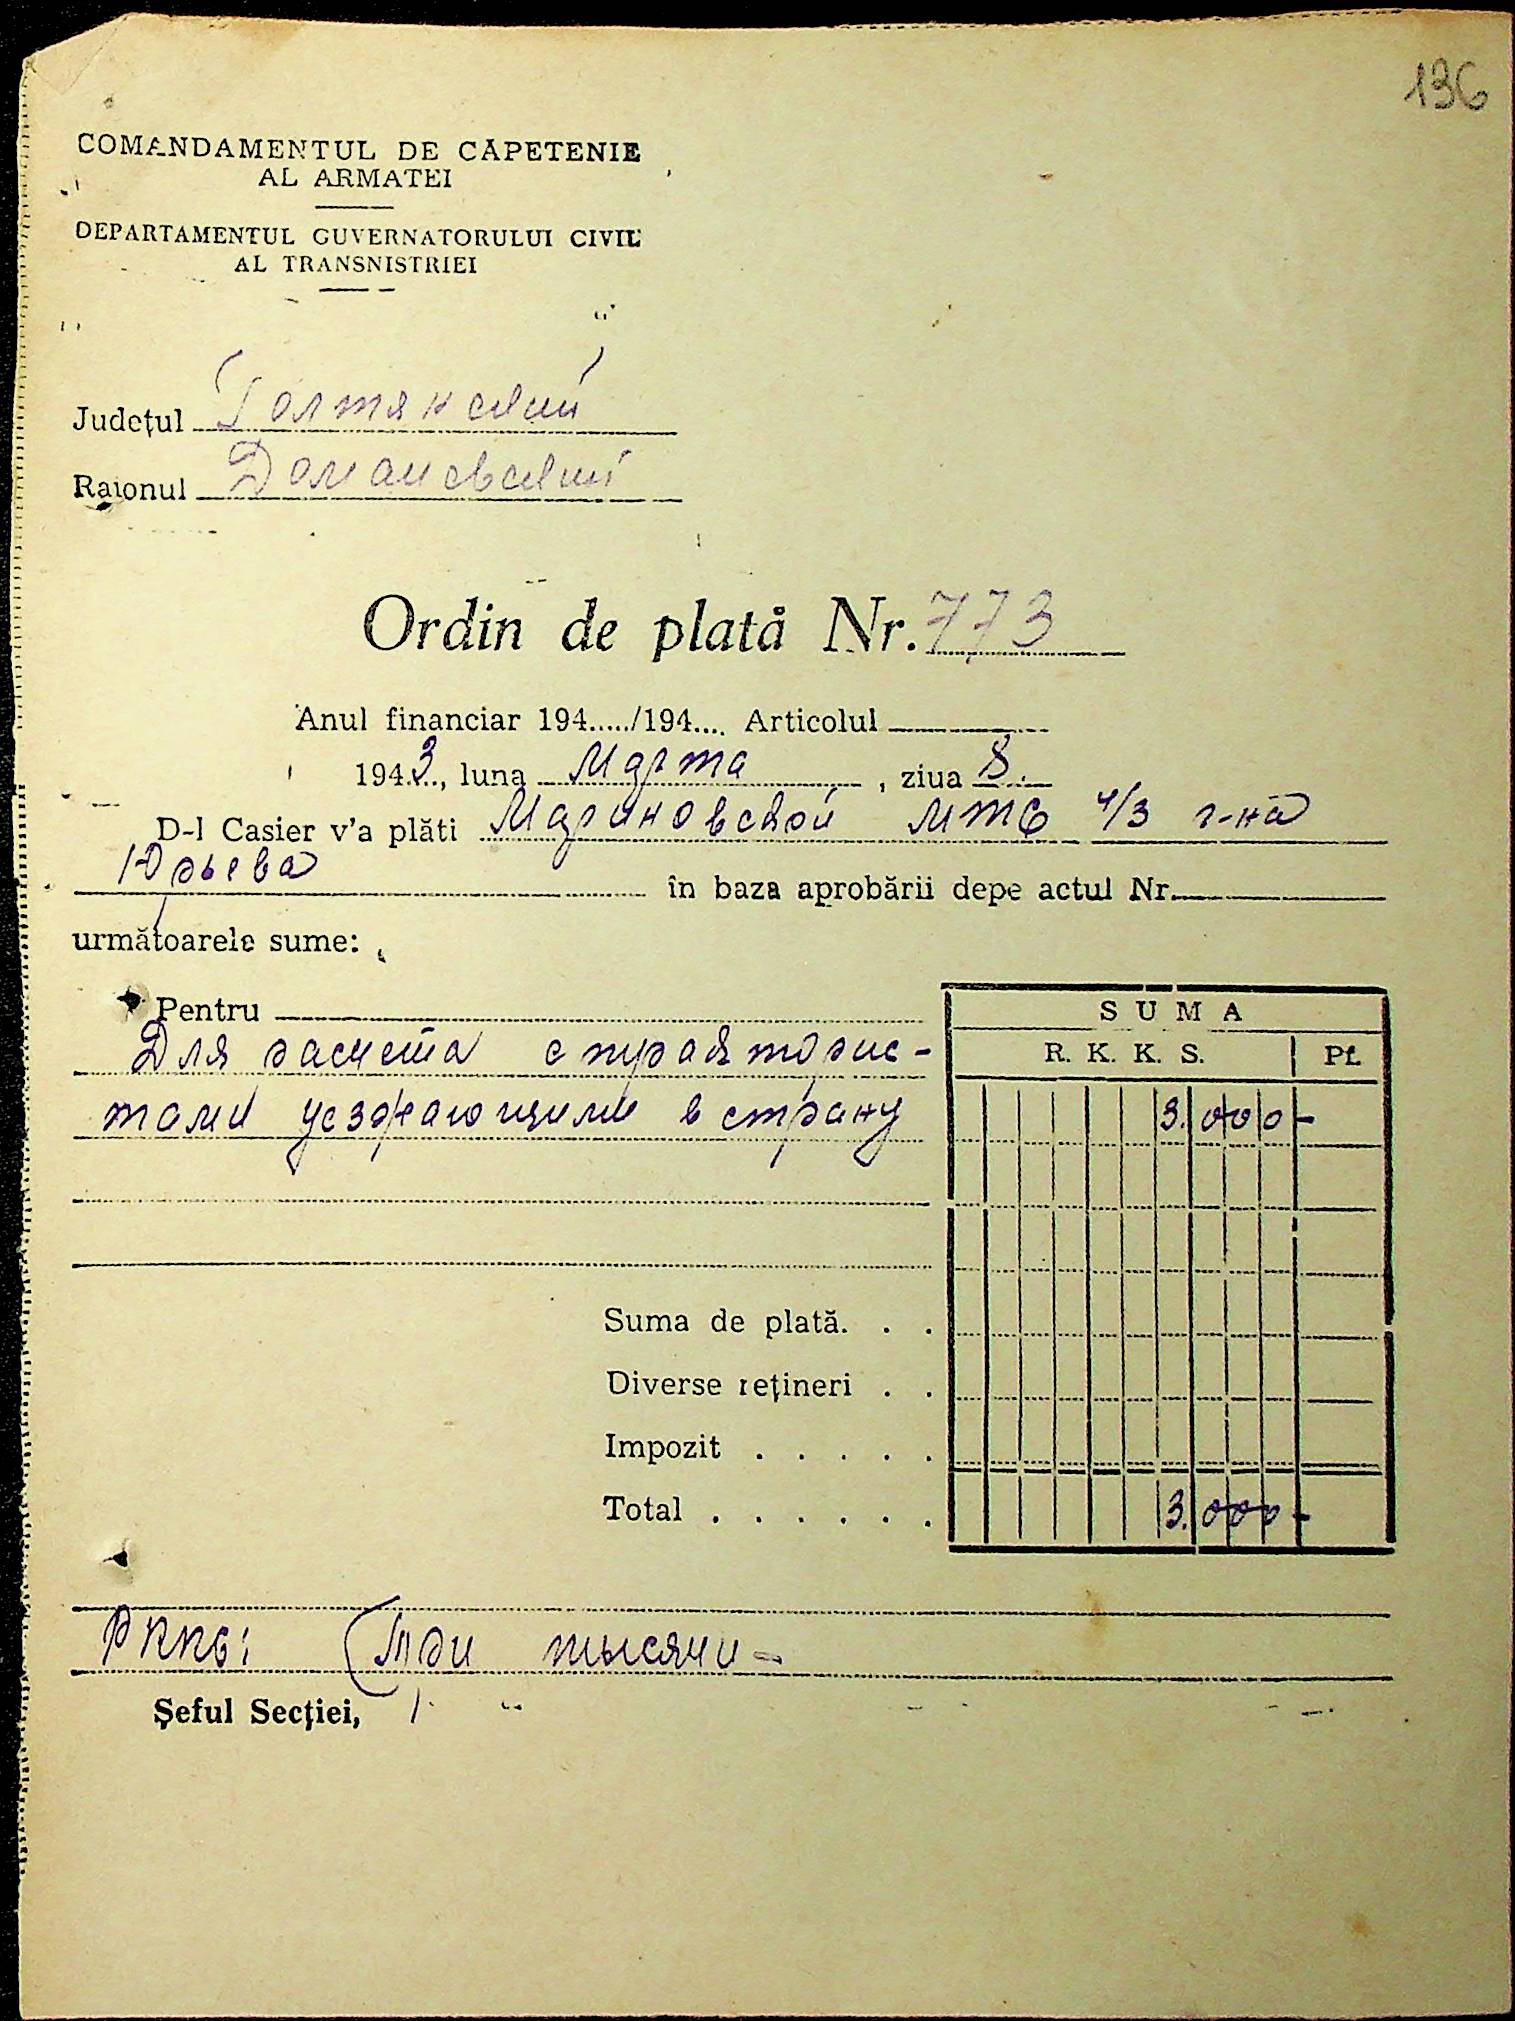 136
COMANDAMENTUL DE CĂPETENIE
AL ARMATEI
DEPARTAMENTUL GUVERNATORULUI CIVIL
AL TRANSNISTRIEI
Județul Голтянский
Raionul Доманевский
Ordin de plată Nr. 773
Anul financiar 194...../194.... Articolul
1943., luna Марта, ziua 8.
D-l Casier v'a plăti Мариновской МТС ч/з г-на
Юрьева în baza aprobării depe actul Nr.
următoarele sume:
Pentru
S U M A
R. K. K. S. Pf.
Для расчета с трактορис-
3.000-
тами уезжающими в страну
Suma de plată. . .
Diverse rețineri . .
Impozit . . . . .
Total . . . . . . 3.000-
РККС: (три тысячи-
Șeful Secției,